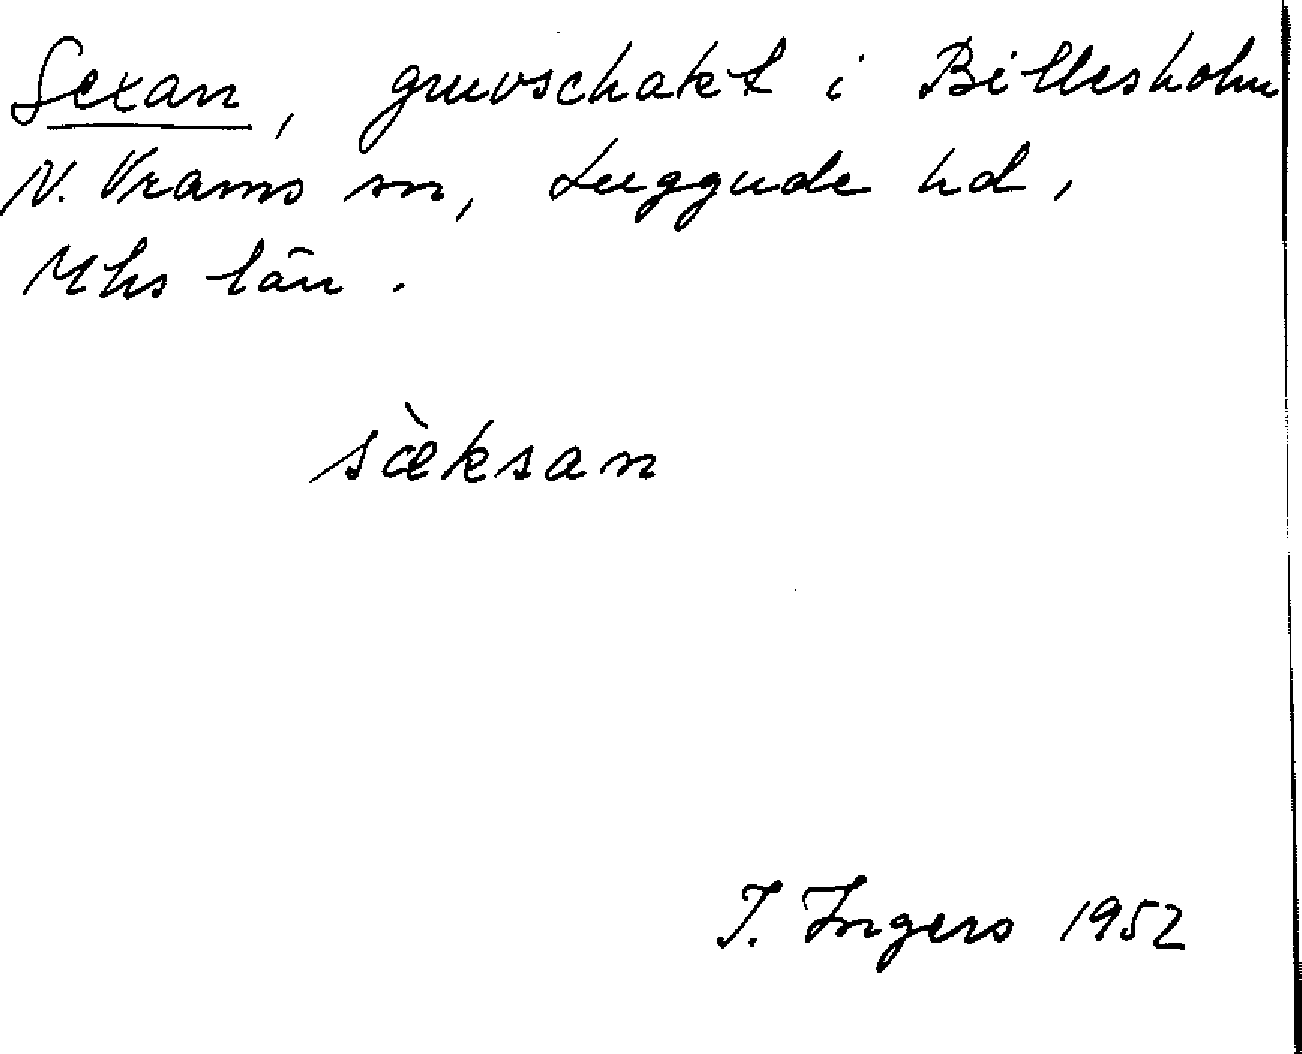 Sexan, gruvschakt i Billesholm
N. Vrams sn, Luggude hd,
Mhs län.
sæ̀ksan
I. Ingers 1952